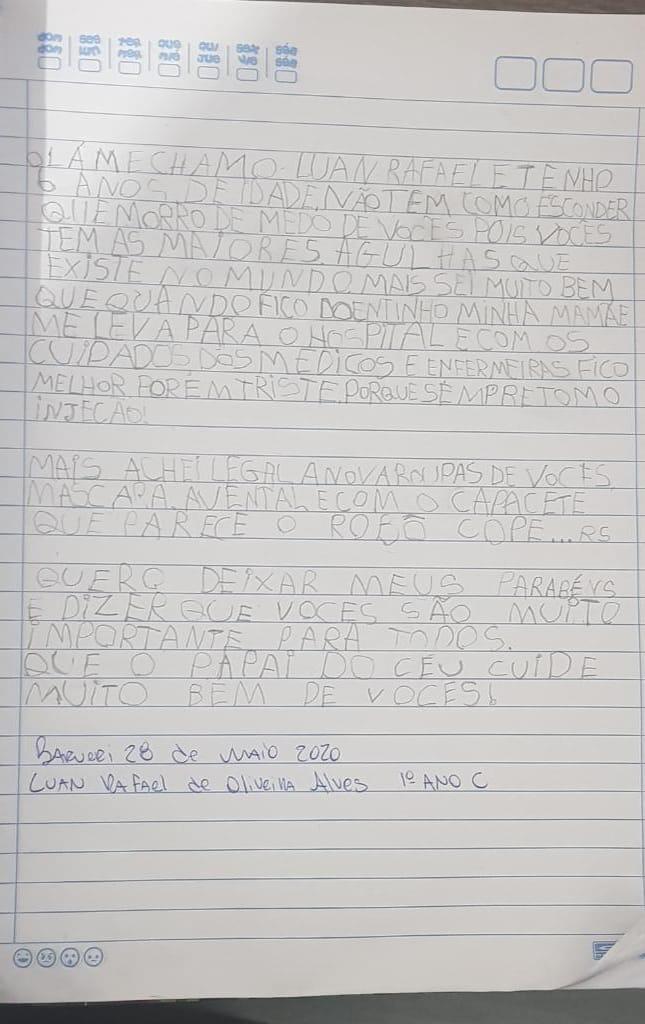 dom seg ter qua qui sex sáb
dom lun mar mié jue vie sáb
OLÁ ME CHAMO LUAN RAFAEL E TENHO
6 ANOS DE IDADE, NÃO TEM COMO ESCONDER
QUE MORRO DE MEDO DE VOCES POIS VOCÊS
TEM AS MAIORES AGULHAS QUE
EXISTE NO MUNDO, MAIS SEI MUITO BEM
QUE QUANDO FICO DOENTINHO MINHA MAMÃE
ME LEVA PARA O HOSPITAL E COM OS
CUIDADOS DOS MÉDICOS E ENFERMEIRAS FICO
MELHOR PORÉM TRISTE, PORQUE SEMPRE TOMO
INJEÇÃO!
MAIS ACHEI LEGAL A NOVA ROUPAS DE VOCES,
MASCARA, AVENTAL E COM O CAPACETE
QUE PARECE O ROBÔ COPE...RS
QUERO DEIXAR MEUS PARABÉNS
E DIZER QUE VOCES SÃO MUITO
IMPORTANTE PARA TODOS.
QUE O PAPAI DO CÉU CUIDE
MUITO BEM DE VOCES!
BARUERI 28 de MAIO 2020
LUAN RAFAEL de OLIVEIRA ALVES 1º ANO C